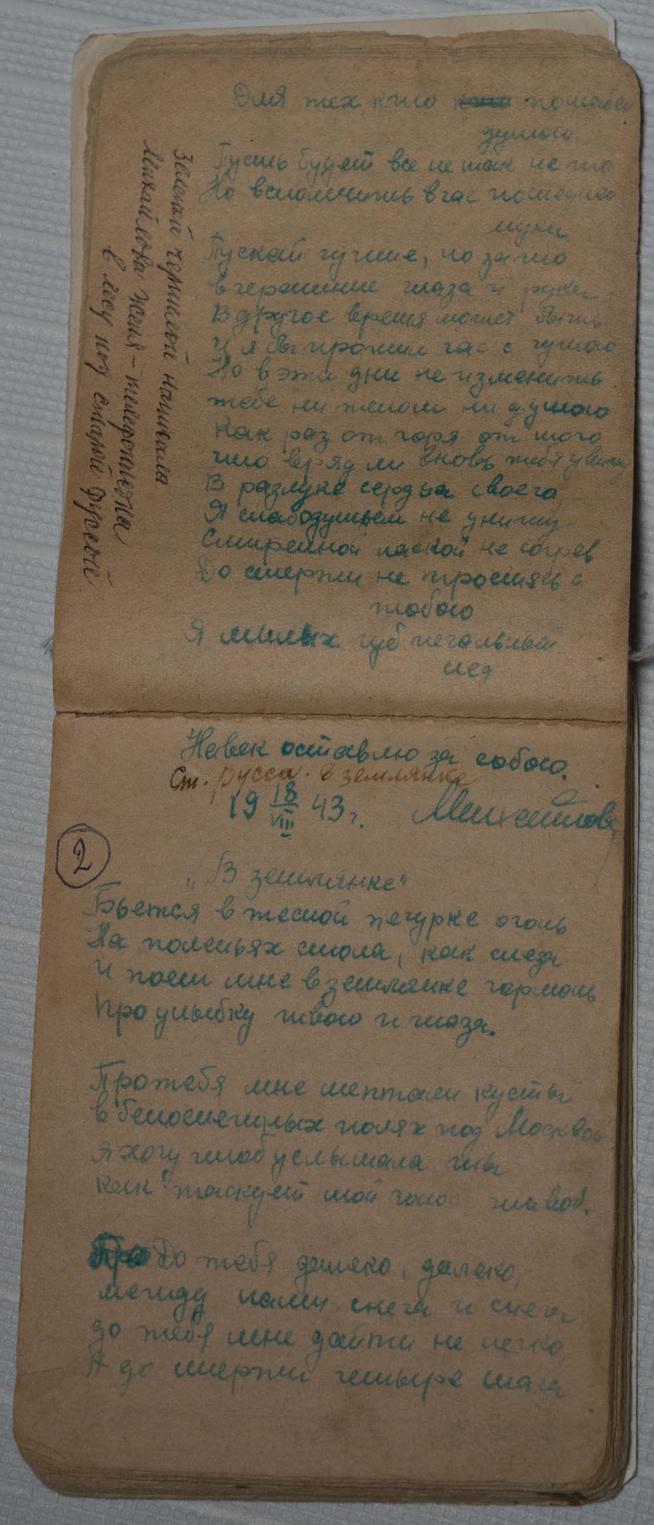 Для тех кто кто полюбил
душою.
Пусть будет все не так не то
Но вспомнить в час последней
муки
Пускай чужие, но зато
вчерашние глаза и руки
В другое время может быть
И я бы прожил час с чужою
Но в эти дни не изменить
тебе ни телом ни душою
Как раз от горя от того
что вряд ли вновь тебя увижу
В разлуке сердца своего
Я слабодушьем не унижу
Смиренной лаской не согрев
До смерти не простясь с
тобою
Я милых губ печальный
след
Навек оставлю за собою.
Ст. Русса. в землянке
19 18/VIII 43 г. Михайлова
Зеленой чернилой написала
Михайлова Женя - телефонистка
в лесу под старой Руссой
2
„В землянке"
Бьется в тесной печурке огонь
На поленьях смола, как слеза
И поет мне в землянке гармонь
Про улыбку твою и глаза.
Про тебя мне шептали кусты
в белоснежных полях под Москвой
я хочу чтоб услышала ты
как тоскует мой голос живой.
До тебя далеко, далеко,
между нами снега и снега
до тебя мне дойти не легко
А до смерти четыре шага